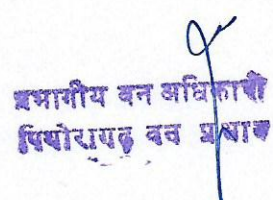 प्रभागीय वन अधिकारी
पिथोरागढ़ वन प्रभाग